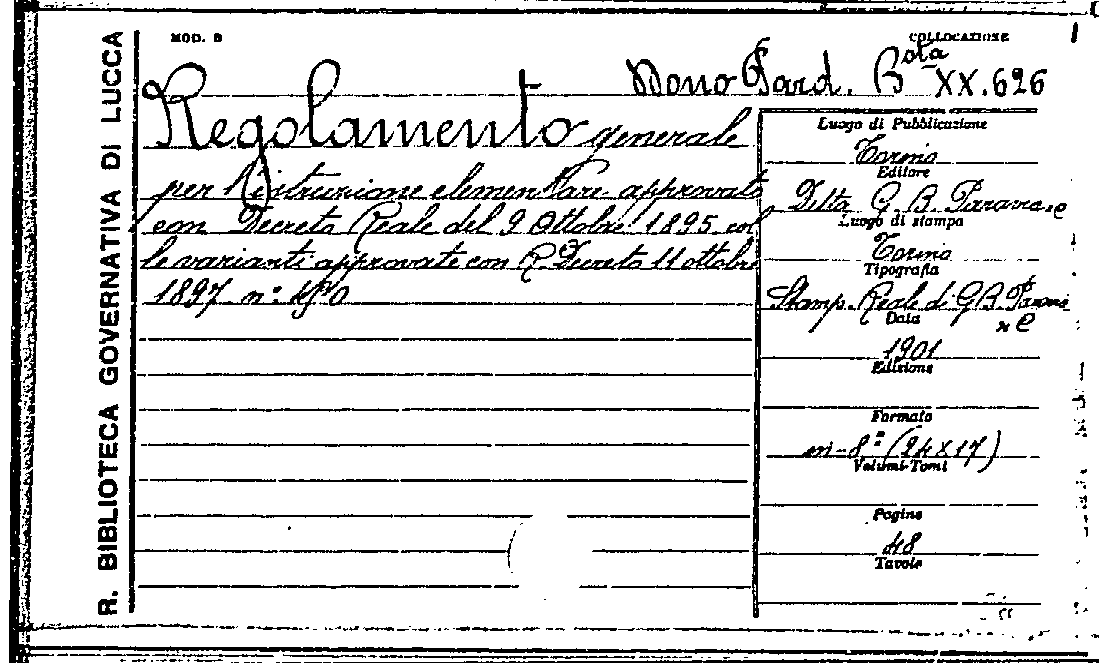 R. BIBLIOTECA GOVERNATIVA DI LUCCA
MOD. B
COLLOCAZIONE
Dono Pard. Bota XX.626
Regolamento generale
per l'istruzione elementare approvato
con Decreto Reale del 9 Ottobre 1895 col
le varianti approvate con R. Decreto 11 ottobre
1897 n:
Luogo di Pubblicazione
Torino
Editore
Ditta G. B. Paravia e C
Luogo di stampa
Torino
Tipografia
Stamp. Reale di G B. Paravia
e C
Data
1901
Edizione
Formato
in-8° (24x17)
Volumi-Tomi
Pagine
48
Tavole